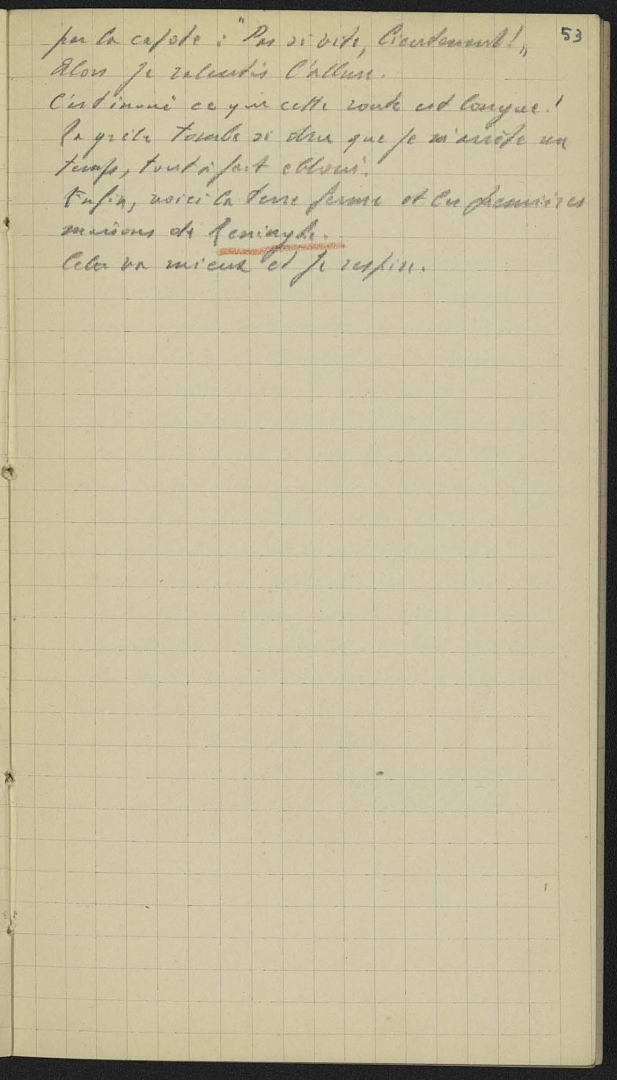 53
par la capote : "Pas si vite, Lieutenant !"
Alors je ralentis l'allure.
C'est inouï ce que cette route est longue !
La grêle tombe si dru que je m'arrête un
temps, tout à fait ébloui.
Enfin, voici la terre ferme et les premières
maisons de Reninghe.
Cela va mieux et je respire.